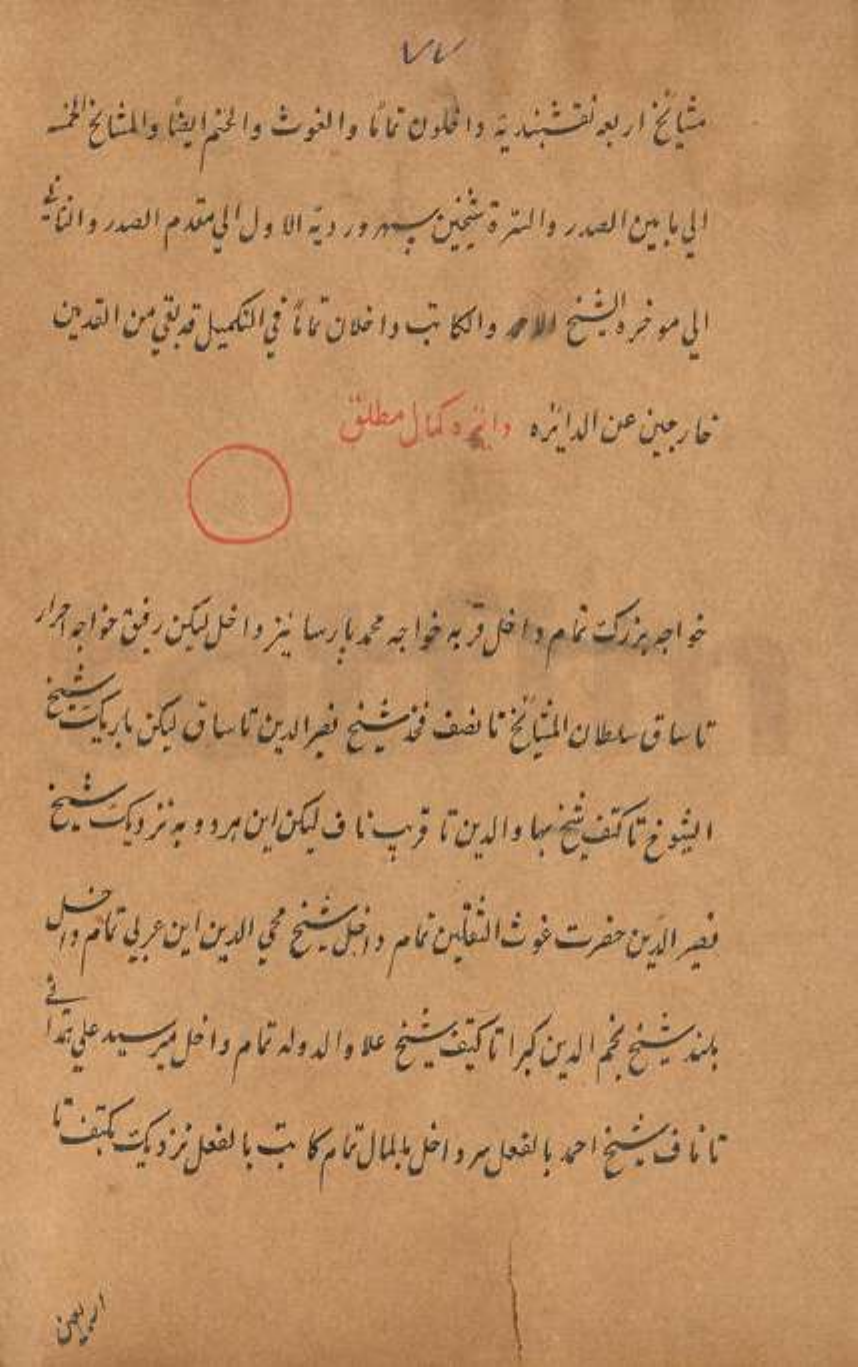 ۷۷
مشائخ اربعه نقشبندیة داخلون تمامًا والغوث والختم ایضًا والمشائخ الخمسه
الی مابین الصدر والسرة شیخین سهروردیة الاول الی مقدم الصدر والثانے
الی موخره الشیخ والکاتب داخلان تمامًا فی التکمیل قد بقی من القدمین
خارجین عن الدائره دائره کمال مطلق
خواجه بزرک تمام داخل قربه خواجه محمد پارسا نیز داخل لیکن رفیق خواجه احرار
تا ساق سلطان المشائخ تا نصف فخذ شیخ نصیر الدین تا ساق لیکن باریک شیخ
الشیوخ تا کتف شیخ بهاوالدین تا قریب ناف لیکن این هر دو به نزدیک شیخ
نصیر الدین حضرت غوث الثقلین تمام داخل شیخ محی الدین ابن عربی تمام داخل
بلند شیخ نجم الدین کبرا تا کتف شیخ علاوالدوله تمام داخل میر سید علی همدانے
تا ناف شیخ احمد بالفعل سر داخل بالمال تمام کاتب بالفعل نزدیک بکتف تا
اربعین